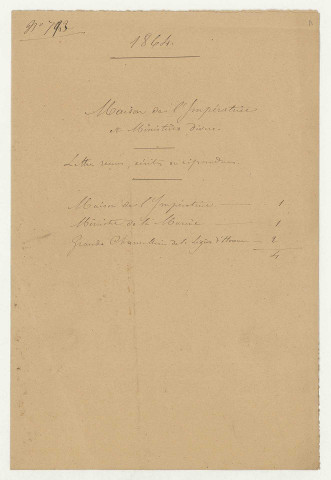 N° 793
1864.
Maison de l'Impératrice
et Ministères divers.
Lettres reçues, écrites ou répondues.
Maison de l'Impératrice — 1
Ministre de la Marine — 1
Grande Chancellerie de la Légion d'Honneur — 2
4